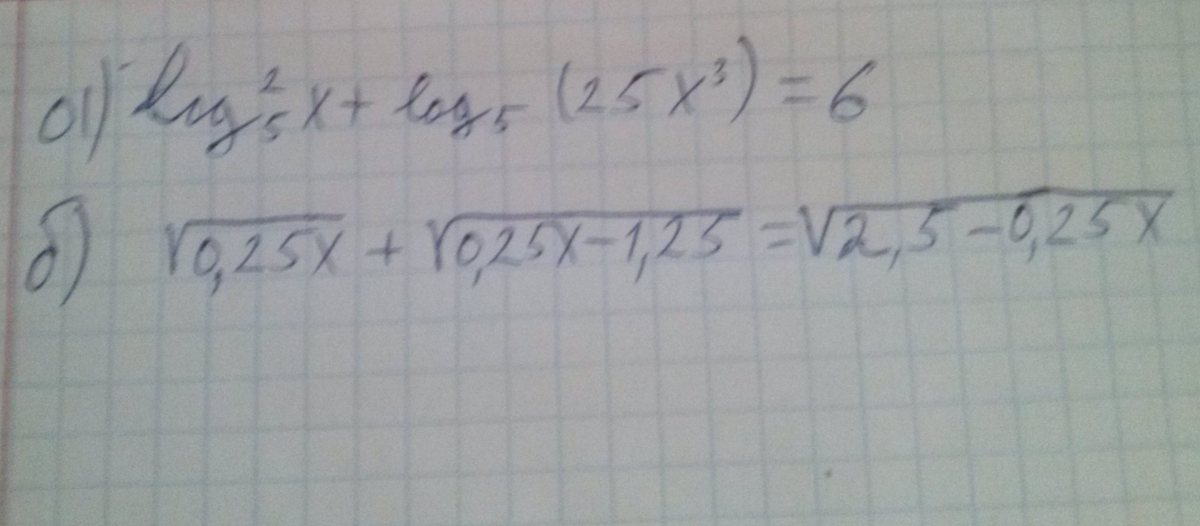 а) log₅²x + log₅(25x³) = 6
б) √0,25x + √0,25x-1,25 = √2,5-0,25x